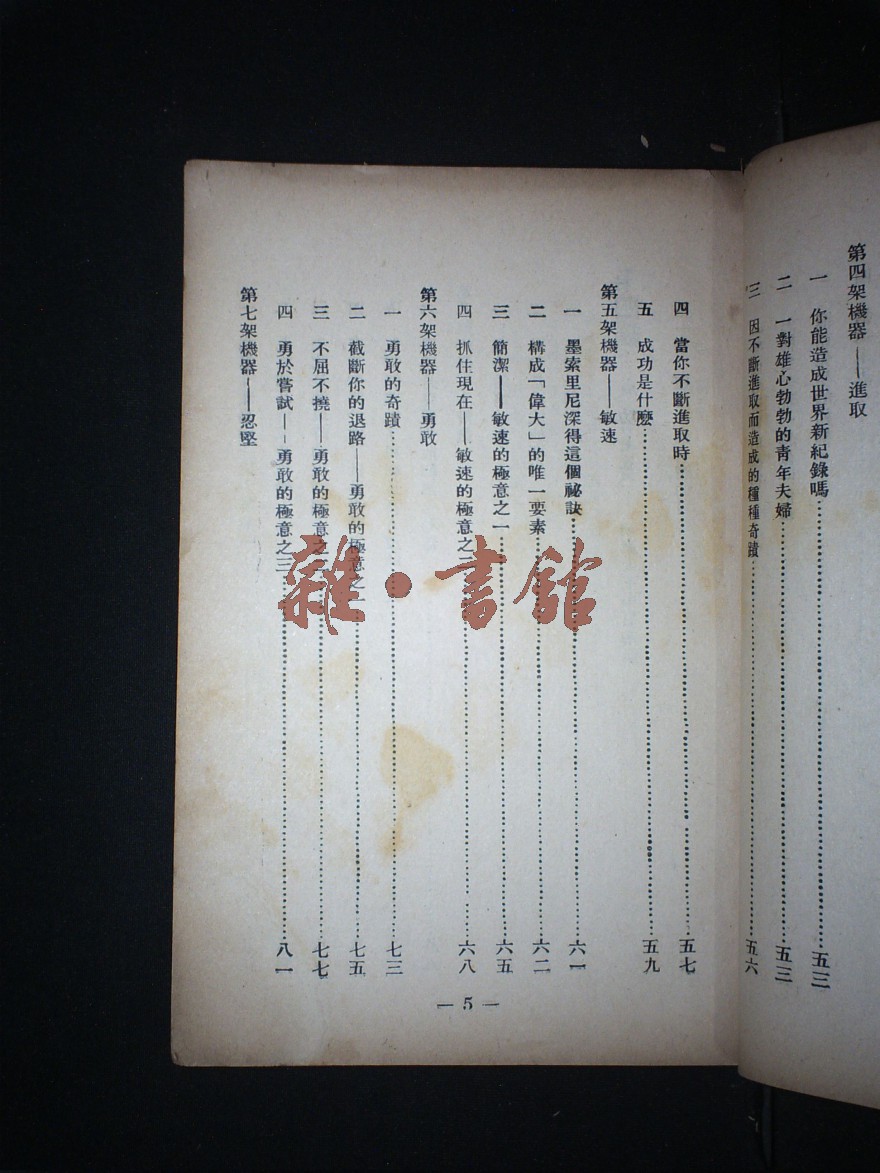 第四架機器——進取
一 你能造成世界新紀錄嗎……五三
二 一對雄心勃勃的青年夫婦……五三
三 因不斷進取而造成的種種奇蹟……五六
四 當你不斷進取時……五七
五 成功是什麼……五九
第五架機器——敏速
一 墨索里尼深得這個祕訣……六一
二 構成「偉大」的唯一要素……六二
三 簡潔——敏速的極意之一……六五
四 抓住現在——敏速的極意之二……六八
第六架機器——勇敢
一 勇敢的奇蹟……七三
二 截斷你的退路——勇敢的極意之一……七五
三 不屈不撓——勇敢的極意之二……七七
四 勇於嘗試——勇敢的極意之三……八一
第七架機器——忍堅
— 5 —
雜·書館